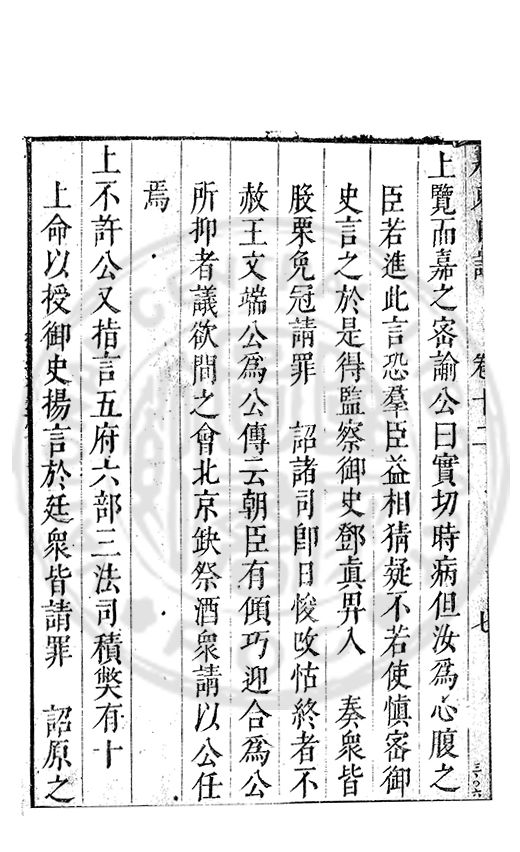 卷十二
七
三〇六
上覽而嘉之密諭公曰實切時病但汝爲心腹之
臣若進此言恐羣臣益相猜疑不若使愼密御
史言之於是得監察御史鄧眞畀入　奏衆皆
股栗免冠請罪　詔諸司卽日悛改怙終者不
赦王文端公爲公傳云朝臣有傾巧迎合爲公
所抑者議欲間之會北京缺祭酒衆請以公任
焉
上不許公又指言五府六部三法司積獘有十
上命以授御史揚言於廷衆皆請罪　詔原之